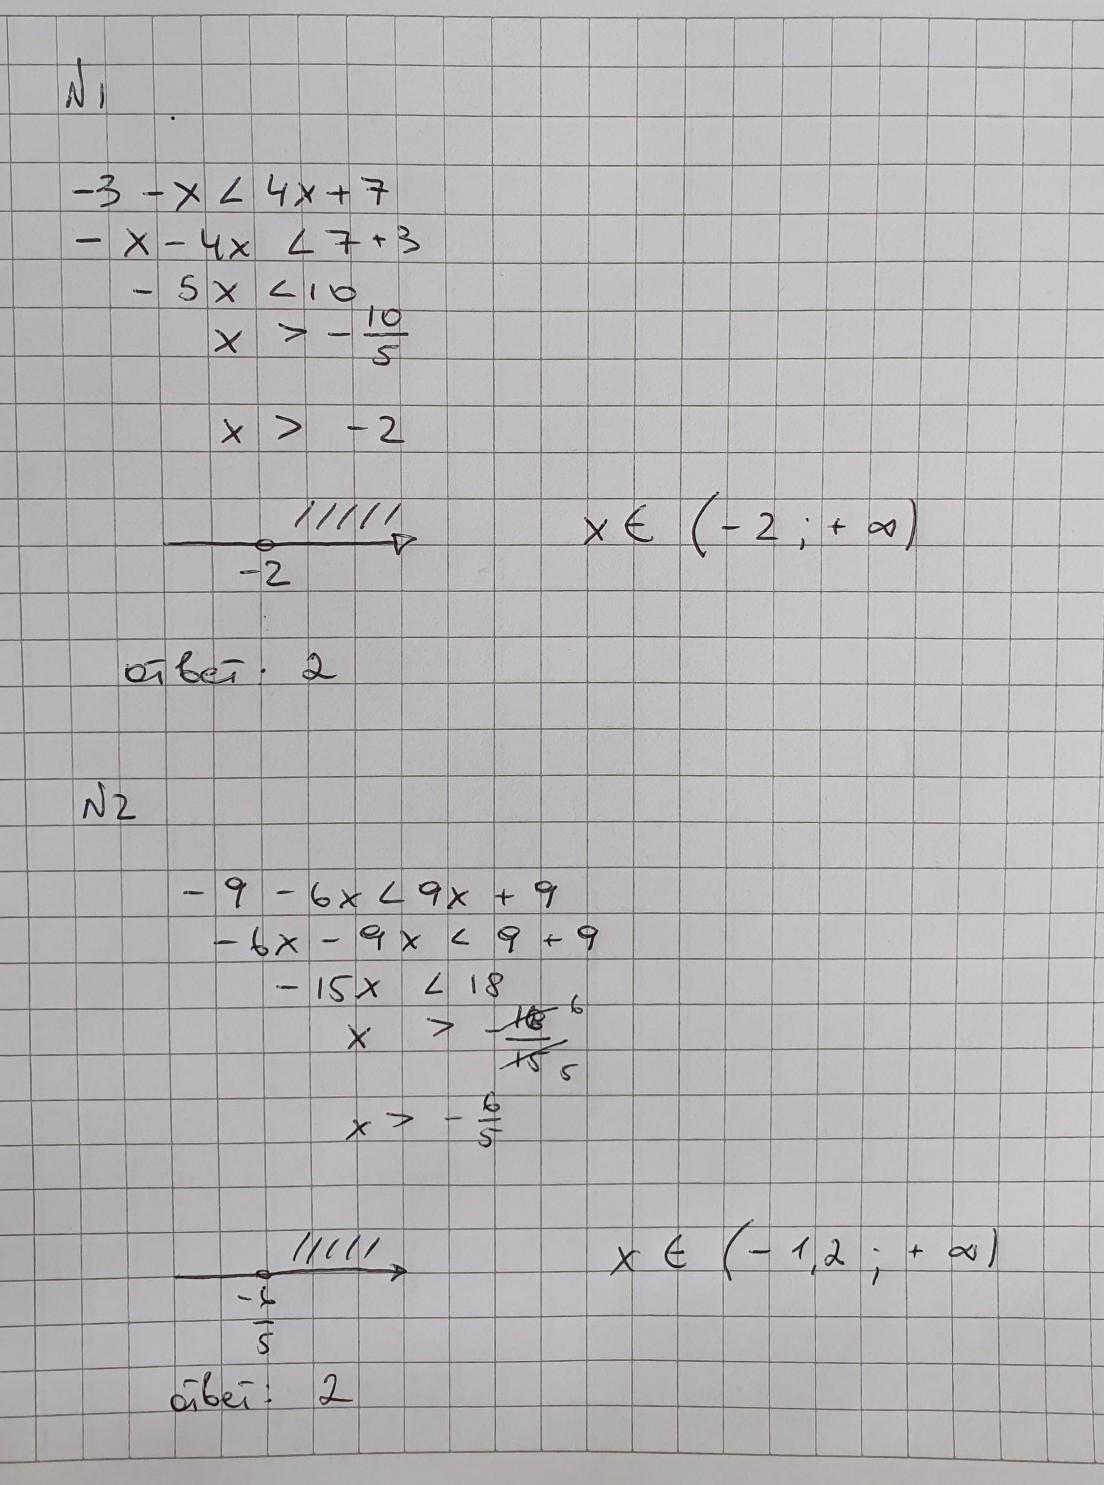 N1
-3 - x < 4x + 7
- x - 4x < 7 + 3
- 5x < 10
x > - 10/5
x > - 2
-2
x ∈ (- 2 ; + ∞)
ответ: 2
N2
- 9 - 6x < 9x + 9
- 6x - 9x < 9 + 9
- 15x < 18
x > - 18/15 6 5
x > - 6/5
- 6/5
x ∈ (- 1,2 ; + ∞)
ответ: 2